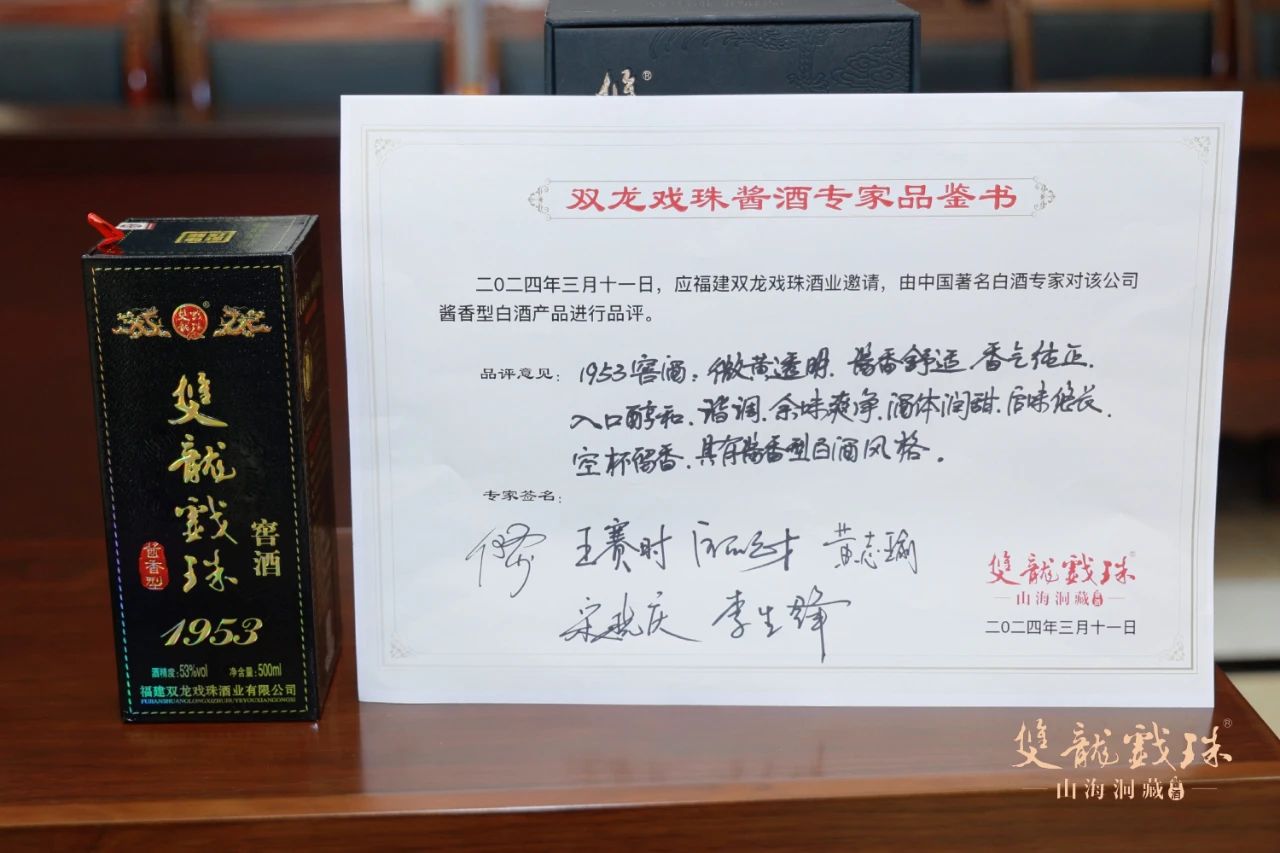 雙龍戲珠
窖酒
酱香型
1953
酒精度:53%vol 净含量:500ml
福建双龙戏珠酒业有限公司
FUJIANSHUANGLONGXIZHUJIUYEYOUXIANGONGSI
双龙戏珠酱酒专家品鉴书
二〇二四年三月十一日，应福建双龙戏珠酒业邀请，由中国著名白酒专家对该公司
酱香型白酒产品进行品评。
品评意见：1953窖酒：微黄透明、酱香舒适、香气纯正、
入口醇和、谐调、余味爽净、酒体润甜、后味悠长、
空杯留香、具有酱香型白酒风格。
专家签名：
王赛时 黄志瑜
李生
雙龍戲珠®
山海洞藏
二〇二四年三月十一日
雙龍戲珠®
山海洞藏